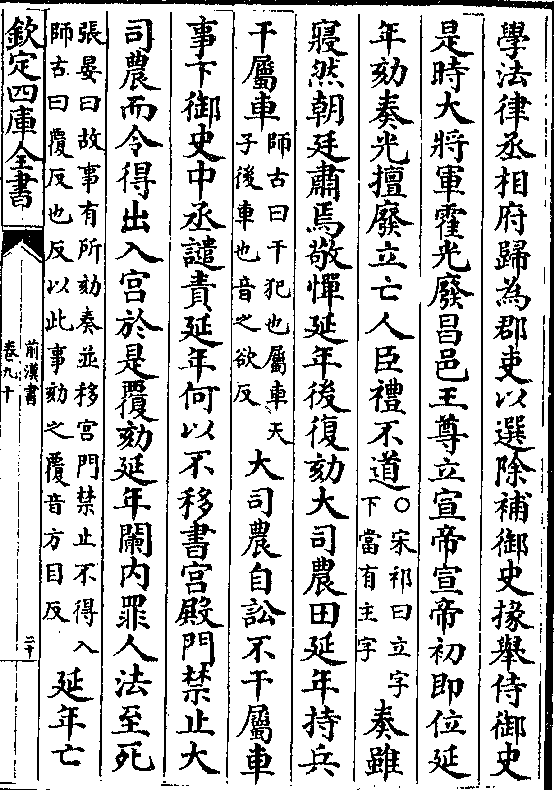 學法律丞相府歸為郡吏以選除補御史掾舉侍御史
是時大將軍霍光廢昌邑王尊立宣帝宣帝初即位延
年劾奏光擅廢立亡人臣禮不道○宋祁曰立字下當有主字奏雖
寢然朝廷肅焉敬憚延年後復劾大司農田延年持兵
干屬車師古曰干犯也屬車天子後車也音之欲反大司農自訟不干屬車
事下御史中丞譴責延年何以不移書宮殿門禁止大
司農而令得出入宮於是覆劾延年闌内罪人法至死
張晏曰故事有所劾奏並移宮門禁止不得入師古曰覆反也反以此事劾之覆音方目反延年亡
欽定四庫全書
前漢書
卷九十
二十